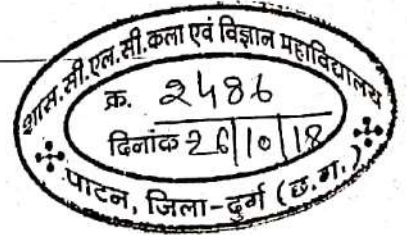 शास. सी.एल.सी.कला एवं विज्ञान महाविद्यालय
क्र. 2486
दिनांक 26/10/18
पाटन, जिला-दुर्ग (छ.ग.)